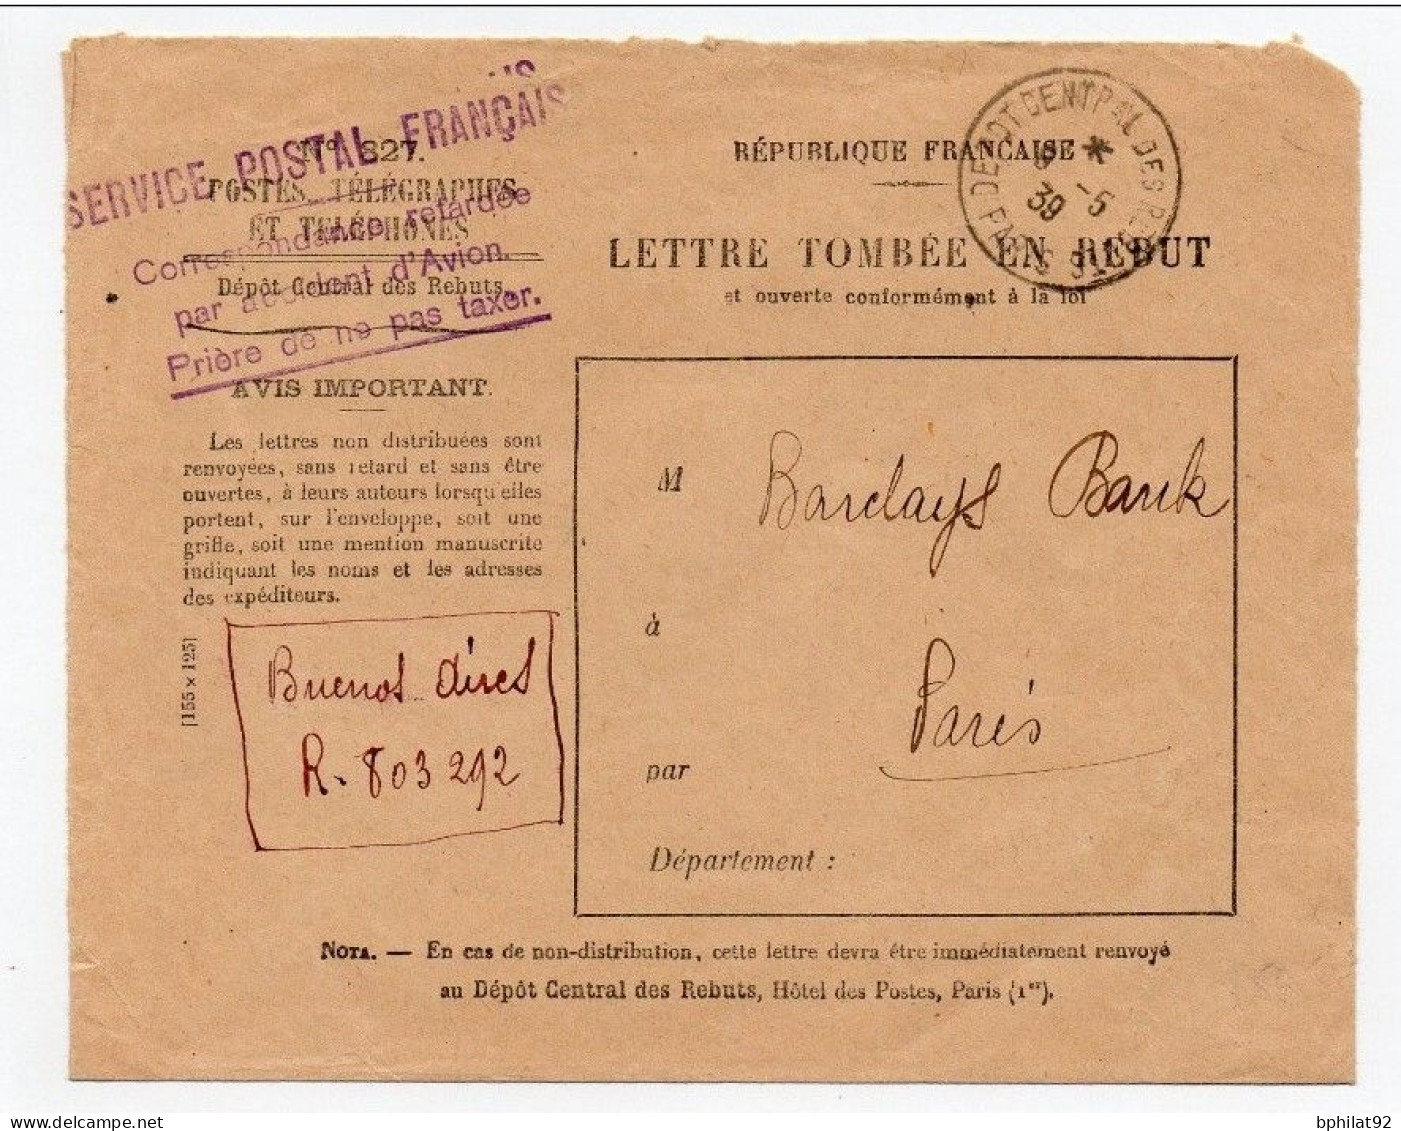 SERVICE POSTAL FRANÇAIS
N° 827.
POSTES, TÉLÉGRAPHES
ET TÉLÉPHONES
Dépôt Central des Rebuts.
Correspondance retardée
par accident d'Avion.
Prière de ne pas taxer.
AVIS IMPORTANT.
Les lettres non distribuées sont
renvoyées, sans retard et sans être
ouvertes, à leurs auteurs lorsqu'elles
portent, sur l'enveloppe, soit une
griffe, soit une mention manuscrite
indiquant les noms et les adresses
des expéditeurs.
[155 x 125]
Buenos Aires
R. 803292
RÉPUBLIQUE FRANÇAISE
DEPOT CENTRAL DES REBUTS
PARIS
* -5
39
LETTRE TOMBÉE EN REBUT
et ouverte conformément à la loi
M Barclays Bank
à
Paris
par
Département :
NOTA. — En cas de non-distribution, cette lettre devra être immédiatement renvoyé
au Dépôt Central des Rebuts, Hôtel des Postes, Paris (1er).
bphilat92